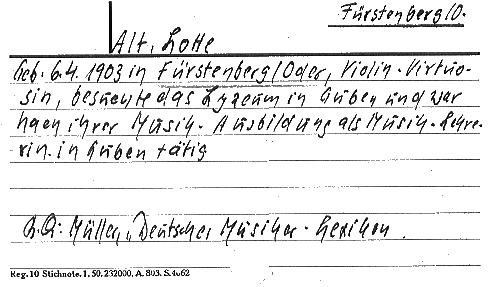 Fürstenberg/O.
Alt, Lotte
Geb. 6.4. 1903 in Fürstenberg/Oder, Violin-Virtuo-
sin, besuchte das Lyzeum in Guben und war
nach ihrer Musik-Ausbildung als Musik-Lehre-
rin in Guben tätig
B.Q: Müller, „Deutsches Musiker-Lexikon
Reg. 10 Stichnote. 1. 50. 232000. A. 803. S. 4662